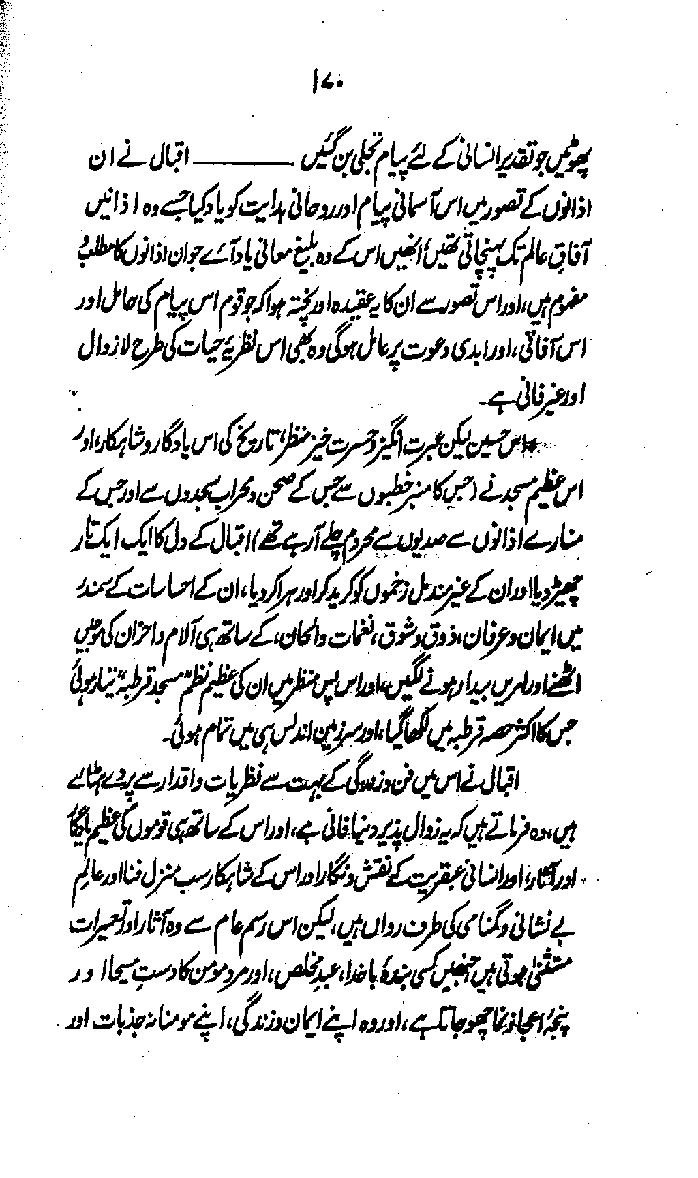 ۱۷۰
پھوٹیں جو تقدیر انسانی کے لئے پیام تجلی بن گئیں ــــــــــــ اقبال نے ان
اذانوں کے تصور میں اس آسمانی پیام اور روحانی ہدایت کو یاد کیا جسے وہ اذانیں
آفاق عالم تک پہنچاتی تھیں، انھیں اس کے وہ بلیغ معانی یاد آئے جو ان اذانوں کا مطلب و
مفہوم ہیں، اور اس تصور سے ان کا یہ عقیدہ اور پختہ ہوا کہ جو قوم اس پیام کی حامل اور
اس آفاقی، اور ابدی دعوت پر عامل ہوگی وہ بھی اس نظریۂ حیات کی طرح لازوال
اور غیر فانی ہے۔
اس حسین لیکن عبرت انگیز و حسرت خیز منظر، تاریخ کی اس یادگار و شاہکار، اور
اس عظیم مسجد نے (جس کا منبر خطبوں سے جس کے صحن و محراب سجدوں سے اور جس کے
منارے اذانوں سے صدیوں سے محروم چلے آرہے تھے) اقبال کے دل کا ایک ایک تار
چھیڑ دیا اور ان کے غیر مندمل زخموں کو کرید کر اور ہرا کر دیا، ان کے احساسات کے سمندر
میں ایمان و عرفان، ذوق و شوق، نغمات و الحان، کے ساتھ ہی آلام و احزان کی موجیں
اٹھنے اور لہریں بیدار ہونے لگیں، اور اس پس منظر میں ان کی عظیم نظم "مسجد قرطبہ" تیار ہوئی
جس کا اکثر حصہ قرطبہ میں لکھا گیا، اور سرزمین اندلس ہی میں تمام ہوئی۔
اقبال نے اس میں فن و زندگی کے بہت سے نظریات و اقدار سے پردے ہٹائے
ہیں، وہ فرماتے ہیں کہ یہ زوال پذیر دنیا فانی ہے، اور اس کے ساتھ ہی قوموں کی عظیم یادگار
اور آثار، اور انسانی عبقریت کے نقش و نگار اور اس کے شاہکار سب منزل فنا اور عالم
بے نشانی و گمنامی کی طرف رواں ہیں، لیکن اس رسم عام سے وہ آثار اور تعمیرات
مستثنیٰ ہوتی ہیں جنھیں کسی بندۂ باخدا، عبد مخلص، اور مرد مومن کا دست مسیحا اور
پنجۂ اعجاز نما چھو جاتا ہے، اور وہ اپنے ایمان و زندگی، اپنے مومنانہ جذبات اور